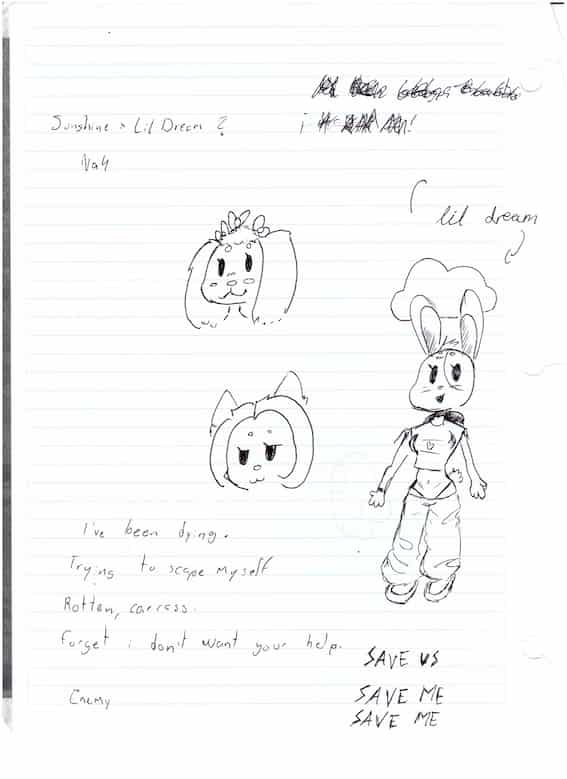 Sunshine > Lil Dream ?
Nah
lil dream
I've been dying.
Trying to scape myself
Rotten, carcass.
Forget i don't want your help.
Enemy
SAVE US
SAVE ME
SAVE ME